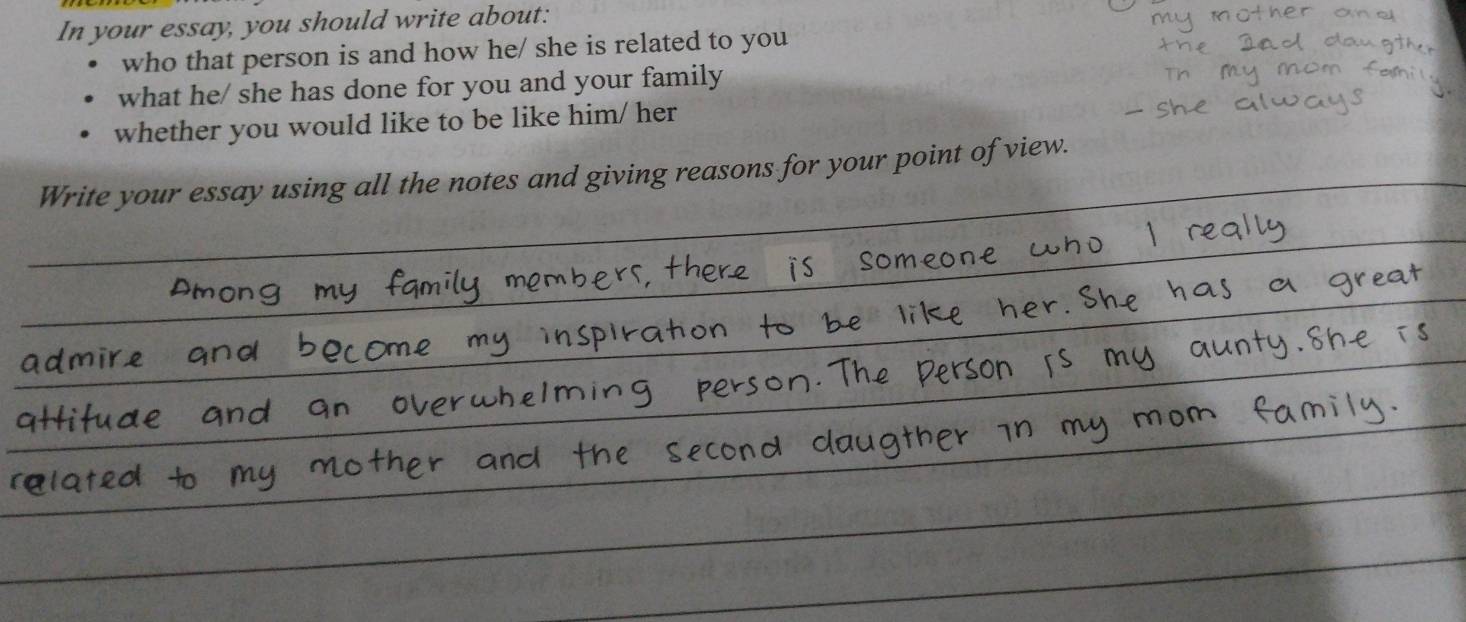 In your essay, you should write about:
• who that person is and how he/ she is related to you
• what he/ she has done for you and your family
• whether you would like to be like him/ her
my mother and
the 2nd daugther
in my mom family.
- she always
Write your essay using all the notes and giving reasons for your point of view.
Among my family members, there is someone who I really
admire and become my inspiration to be like her. She has a great
attitude and an overwhelming person. The person is my aunty. She is
related to my mother and the second daugther in my mom family.